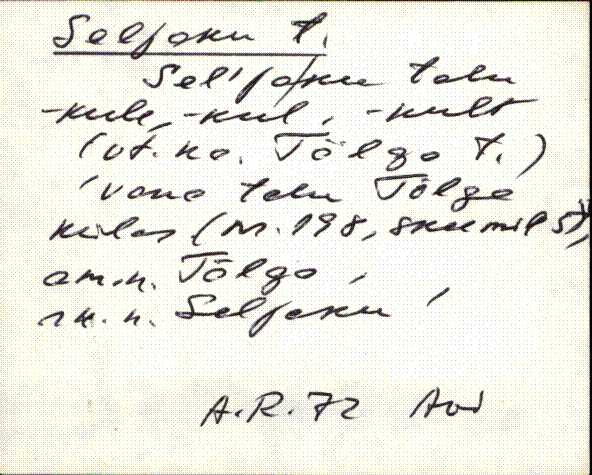 Seljaku t.
Sel'jaku talu
-kule, -kul, -kult
(vt. ka. Tõlgo t.)
'vana talu Tõlga
külas (n. 198,
am.n. Tõlgo,
rk. n. Seljaku'
A.R. 72 Avi